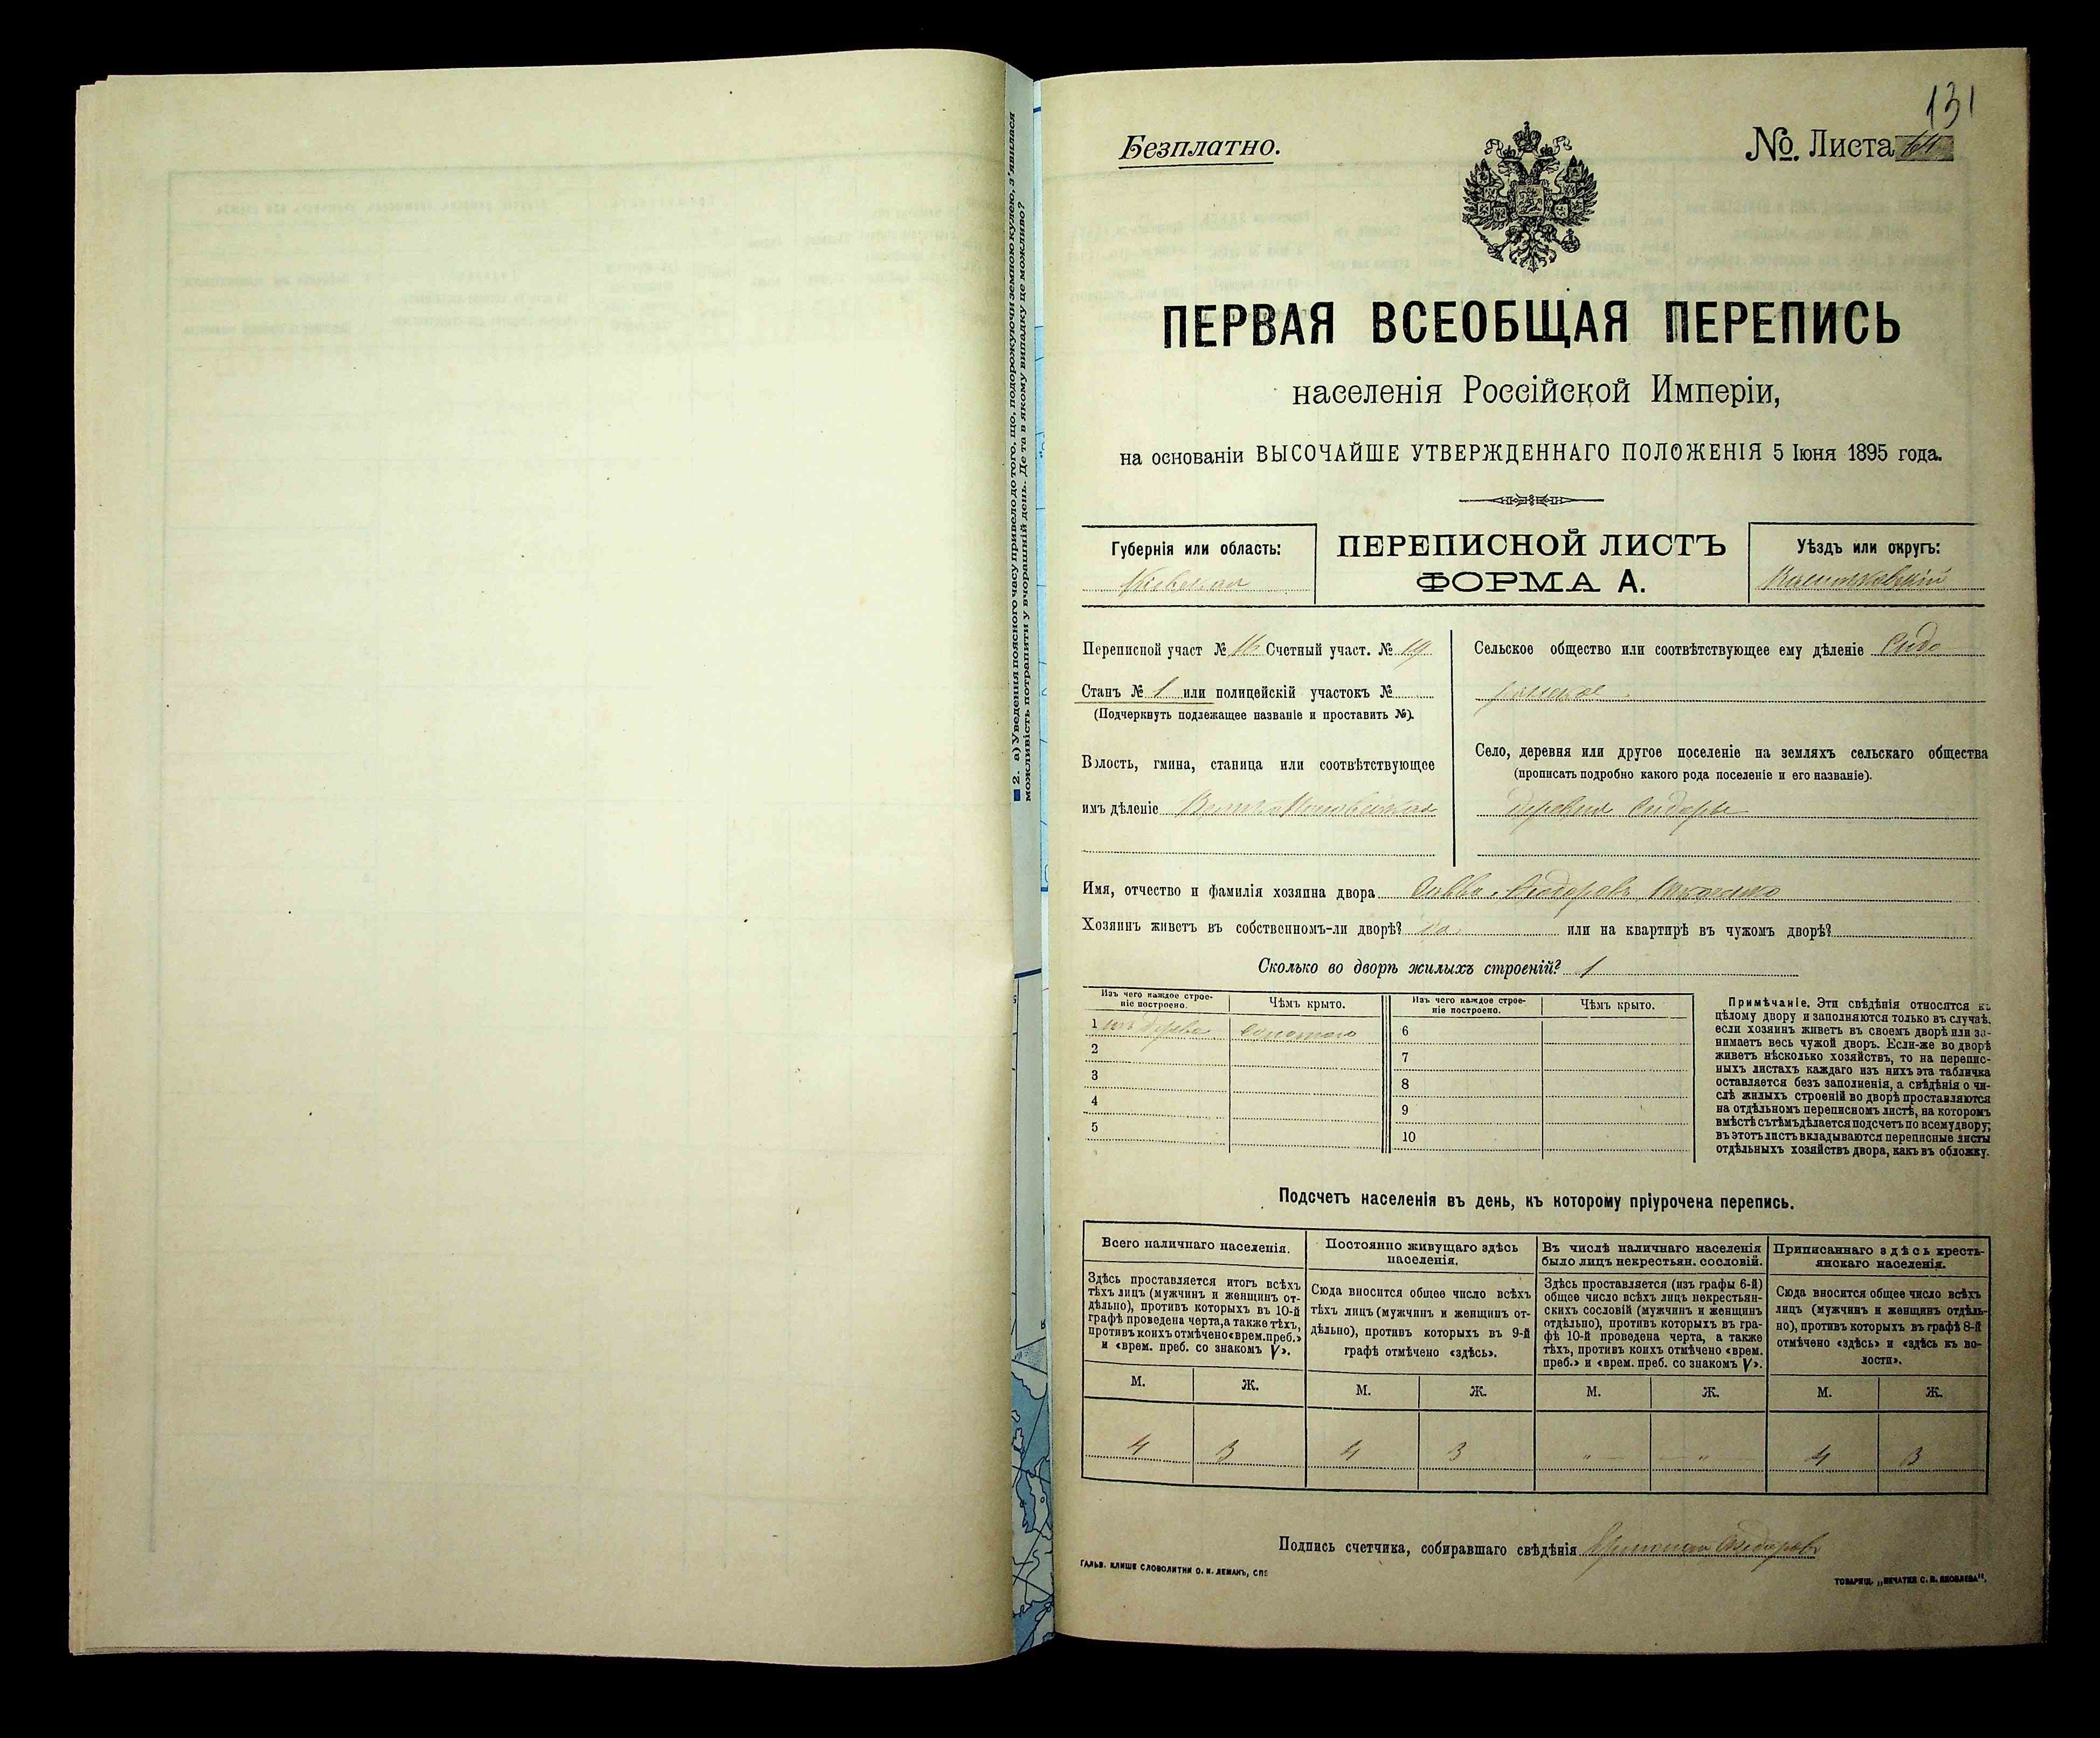 ■ 2. а) Уведення поясного часу привело до того, що, подорожуючи земною кулею, з'явилася
можливість потрапити у вчорашній день. Де та в якому випадку це можливо?
131
Безплатно.
№. Листа
ПЕРВАЯ ВСЕОБЩАЯ ПЕРЕПИСЬ
населенія Россійской Имперіи,
на основаніи ВЫСОЧАЙШЕ УТВЕРЖДЕННАГО ПОЛОЖЕНІЯ 5 Іюня 1895 года.
Губернія или область:
Кіевская
ПЕРЕПИСНОЙ ЛИСТЪ
ФОРМА А.
Уѣздъ или округъ:
Васильковскій
Переписной участ № 16 Счетный участ. № 19
Станъ № 1 или полицейскій участокъ №
(Подчеркнуть подлежащее названіе и проставить №).
Волость, гмина, станица или соотвѣтствующее
имъ дѣленіе
Сельское общество или соотвѣтствующее ему дѣленіе Сидо
рское
Село, деревня или другое поселеніе на земляхъ сельскаго общества
(прописать подробно какого рода поселеніе и его названіе).
деревня Сидоры
Имя, отчество и фамилія хозяина двора Савва Сидоровъ
Хозяинъ живетъ въ собственномъ-ли дворѣ? да или на квартирѣ въ чужомъ дворѣ?
Сколько во дворѣ жилыхъ строеній? 1
Изъ чего каждое строе-
ніе построено.
Чѣмъ крыто.
Изъ чего каждое строе-
ніе построено.
Чѣмъ крыто.
1 изъ дерева соломою
2
3
4
5
6
7
8
9
10
Примѣчаніе. Эти свѣдѣнія относятся къ
цѣлому двору и заполняются только въ случаѣ,
если хозяинъ живетъ въ своемъ дворѣ или за-
нимаетъ весь чужой дворъ. Если-же во дворѣ
живетъ нѣсколько хозяйствъ, то на перепис-
ныхъ листахъ каждаго изъ нихъ эта табличка
оставляется безъ заполненія, а свѣдѣнія о чи-
слѣ жилыхъ строеній во дворѣ проставляются
на отдѣльномъ переписномъ листѣ, на которомъ
вмѣстѣ съ тѣмъ дѣлается подсчетъ по всему двору;
въ этотъ листъ вкладываются переписные листы
отдѣльныхъ хозяйствъ двора, какъ въ обложку.
Подсчетъ населенія въ день, къ которому пріурочена перепись.
Всего наличнаго населенія.
Здѣсь проставляется итогъ всѣхъ
тѣхъ лицъ (мужчинъ и женщинъ от-
дѣльно), противъ которыхъ въ 10-й
графѣ проведена черта, а также тѣхъ,
противъ коихъ отмѣчено «врем. преб.»
и «врем. преб. со знакомъ V».
Постоянно живущаго здѣсь
населенія.
Сюда вносится общее число всѣхъ
тѣхъ лицъ (мужчинъ и женщинъ от-
дѣльно), противъ которыхъ въ 9-й
графѣ отмѣчено «здѣсь».
Въ числѣ наличнаго населенія
было лицъ некрестьян. сословій.
Здѣсь проставляется (изъ графы 6-й)
общее число всѣхъ лицъ некрестьян-
скихъ сословій (мужчинъ и женщинъ
отдѣльно), противъ которыхъ въ гра-
фѣ 10-й проведена черта, а также
тѣхъ, противъ коихъ отмѣчено «врем.
преб.» и «врем. преб. со знакомъ V».
Приписаннаго здѣсь кресть-
янскаго населенія.
Сюда вносится общее число всѣхъ
лицъ (мужчинъ и женщинъ отдѣль-
но), противъ которыхъ въ графѣ 8-й
отмѣчено «здѣсь» и «здѣсь къ во-
лости».
М. Ж. М. Ж. М. Ж. М. Ж.
4 3 4 3 " " 4 3
Подпись счетчика, собиравшаго свѣдѣнія
ГАЛЬВ. КЛИШЕ СЛОВОЛИТНИ О. И. ЛЕМАНЪ, СПБ
ТОВАРИЩ. „ПЕЧАТНЯ С. П. ЯКОВЛЕВА".